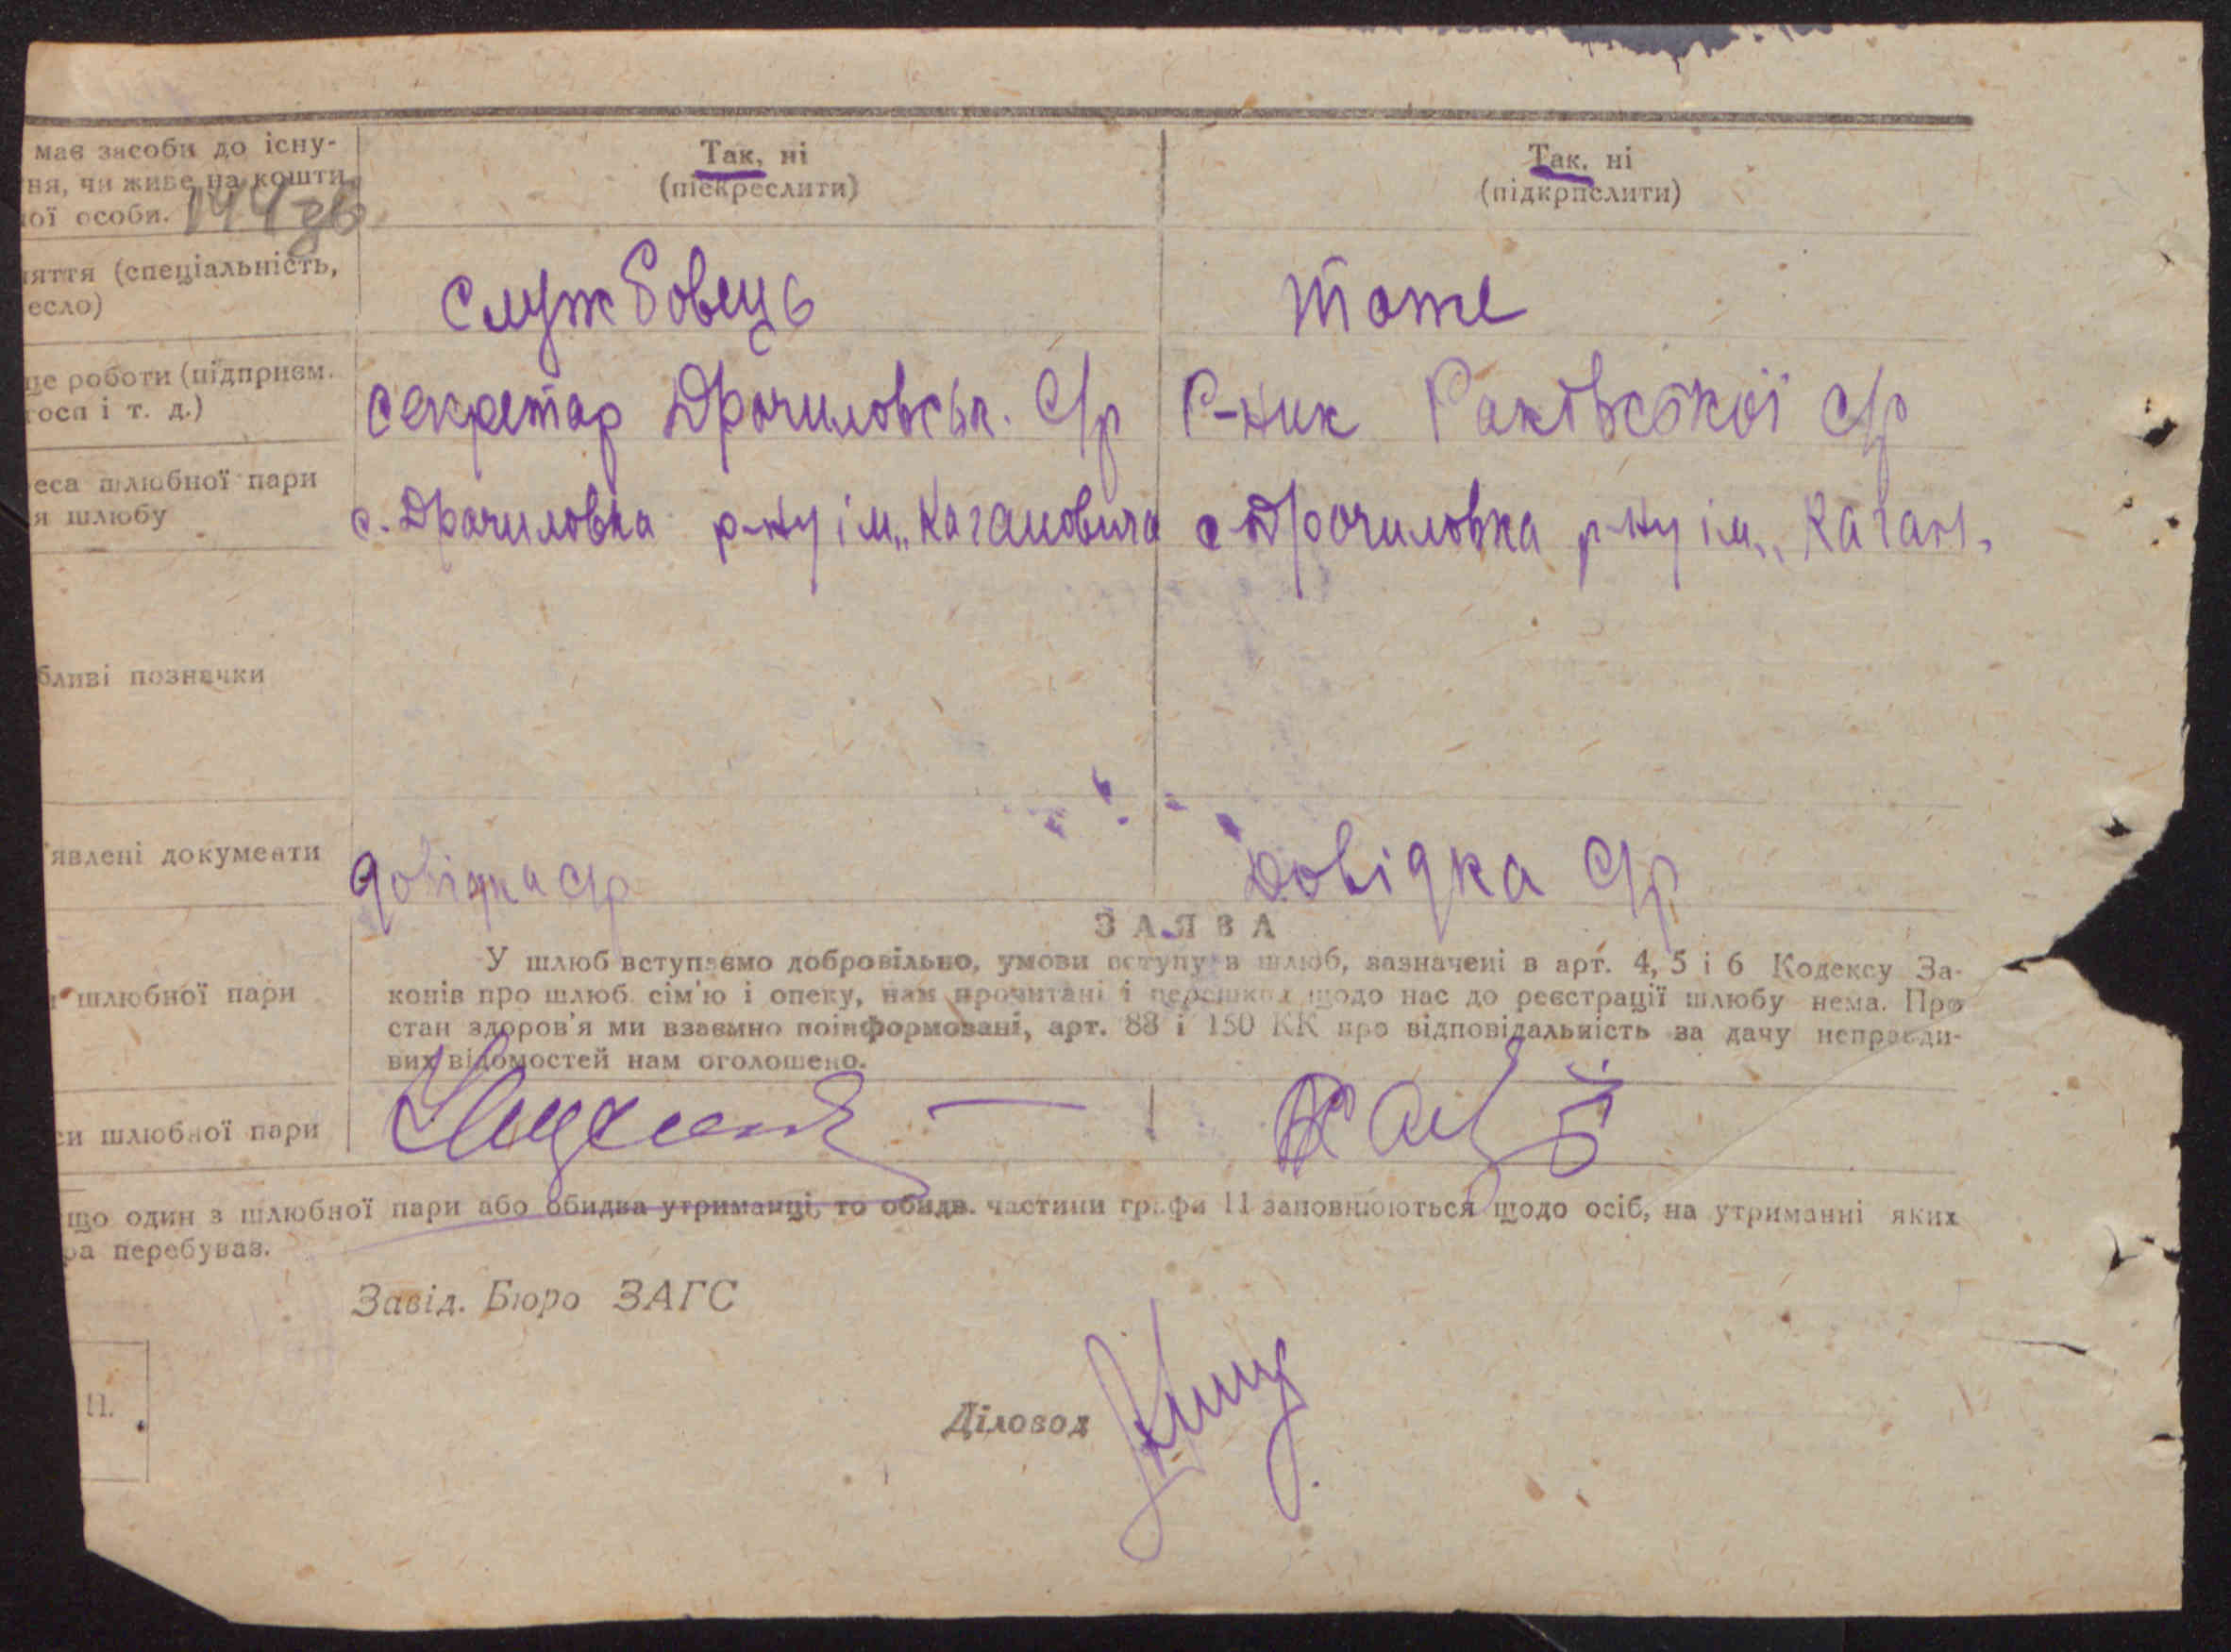 має засоби до існу-
ня, чи живе на кошти
ої особи. 144зв
Так, ні
(піскреслити)
Так, ні
(підкрпслити)
яття (спеціальність,
есло)
службовець
тоже
це роботи (підприєм.
госп і т. д.)
секретар Дрочиловськ. С/р
Р-ник Раківської с/р
еса шлюбної пари
я шлюбу
с. Дрочиловка р-ну ім„ Кагановича
с Дрочиловка р-ну ім„ Каган.
бливі позначки
явлені документи
довідка с/р
Довідка с/р
ЗАЯВА
шлюбної пари
У шлюб вступаємо добровільно, умови вступу в шлюб, зазначені в арт. 4, 5 і 6 Кодексу За-
конів про шлюб сім'ю і опеку, нам прочитані і перешкод щодо нас до реєстрації шлюбу нема. Про
стан здоров'я ми взаємно поінформовані, арт. 88 і 150 КК про відповідальність за дачу неправди-
вих відомостей нам оголошено.
си шлюбної пари
що один з шлюбної пари або обидва утриманці, то обидв. частини графи 11 заповнюються щодо осіб, на утриманні яких
ра перебуває.
Завід. Бюро ЗАГС
Діловод
11.